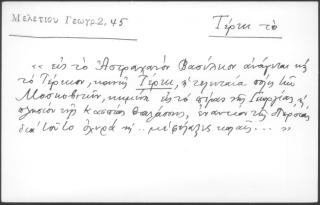 Μελετίου Γεωγρ. 2, 45
Τέρκι τὸ
« εἰς τὸ Ἀστραχανίον Βασίλειον ἀνάγεται καὶ
τὸ Τέρκιον, κοινῶς Τέρκι, ἡ τελευταία πόλις τῶν
Μοσκοβιτῶν, κειμένη εἰς τὸ πέρας τῆς Γεωργίας,
πλησίον τῆς Κασπίας θαλάσσης, ἐναντίον τῆς Περσίας
διὰ τοῦτο ὀχυρὰ